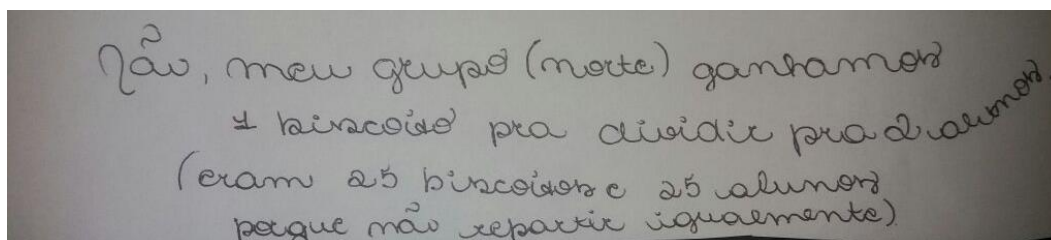 Não, meu grupo (norte) ganhamos
1 biscoito pra dividir pra 2 alunos.
(eram 25 biscoitos e 25 alunos
porque não repartir igualmente)